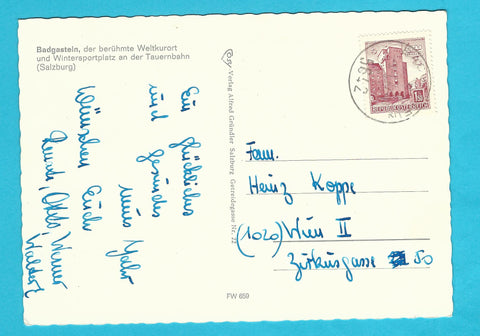 Badgastein, der berühmte Weltkurort
und Wintersportplatz an der Tauernbahn
(Salzburg)
Ein glückliches
und gesundes
neues Jahr
Wünschen Euch
Verlag Alfred Gründler Salzburg Getreidegasse Nr. 22
REPUBLIK ÖSTERREICH
Fam.
Heinz Koppe
(1020) Wien II
Zirkusgasse 50
FW 650